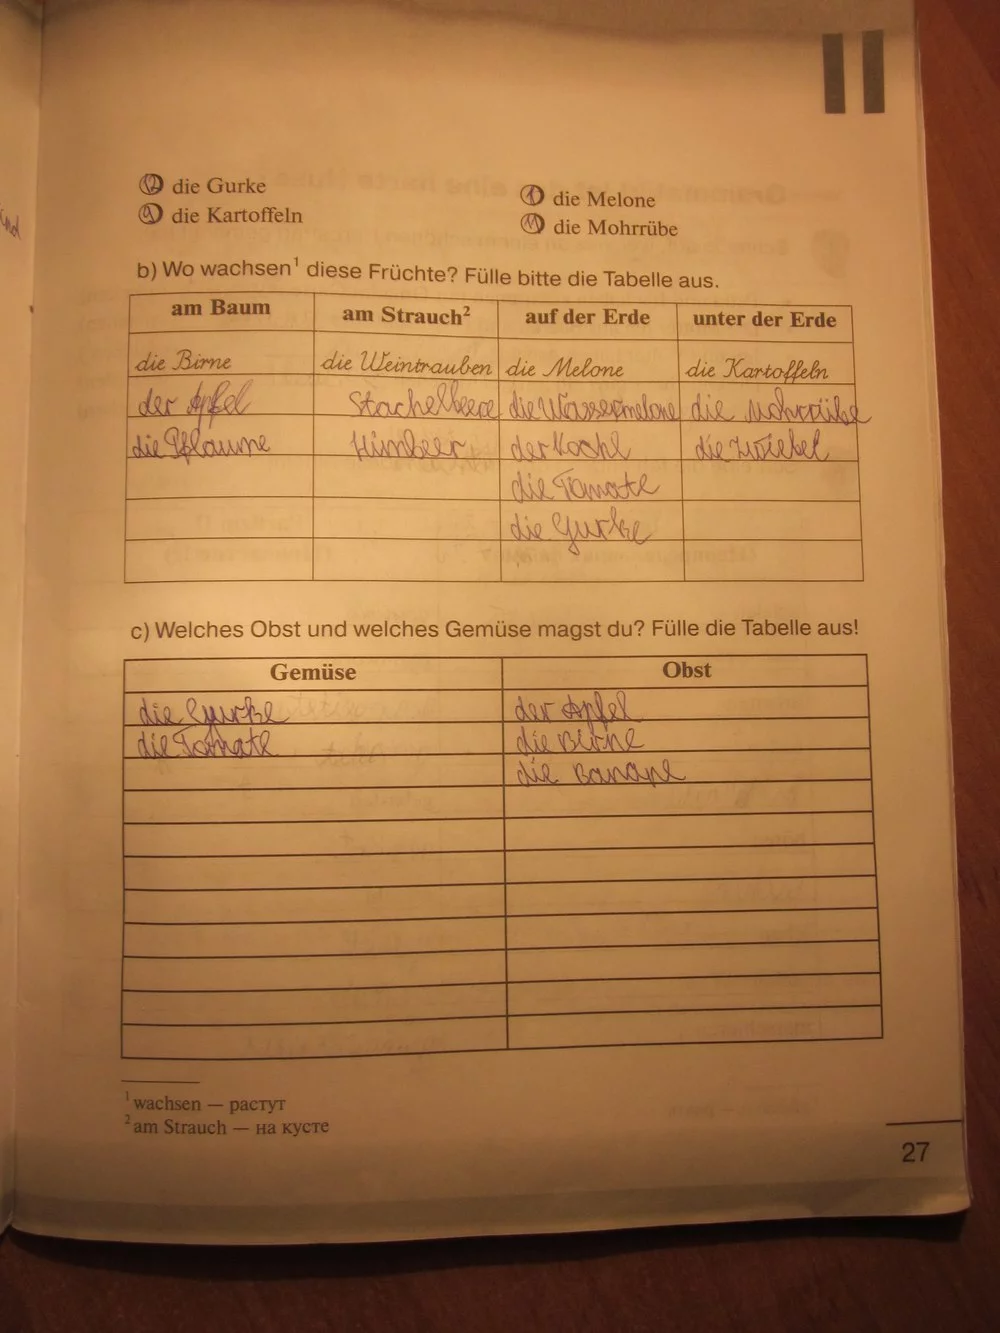 II
12 die Gurke
die Melone
9 die Kartoffeln
11 die Mohrrübe
b) Wo wachsen¹ diese Früchte? Fülle bitte die Tabelle aus.
am Baum am Strauch² auf der Erde unter der Erde
die Birne die Weintrauben die Melone die Kartoffeln
der Apfel Stachelbeere die Wassermelone die Mohrrübe
die Pflaume Himbeer der Kochl die Zwiebel
die Tomate
die Gurke
c) Welches Obst und welches Gemüse magst du? Fülle die Tabelle aus!
Gemüse Obst
die Gurke der Apfel
die Tomate die Birne
die Banane
¹ wachsen — растут
² am Strauch — на кусте
27